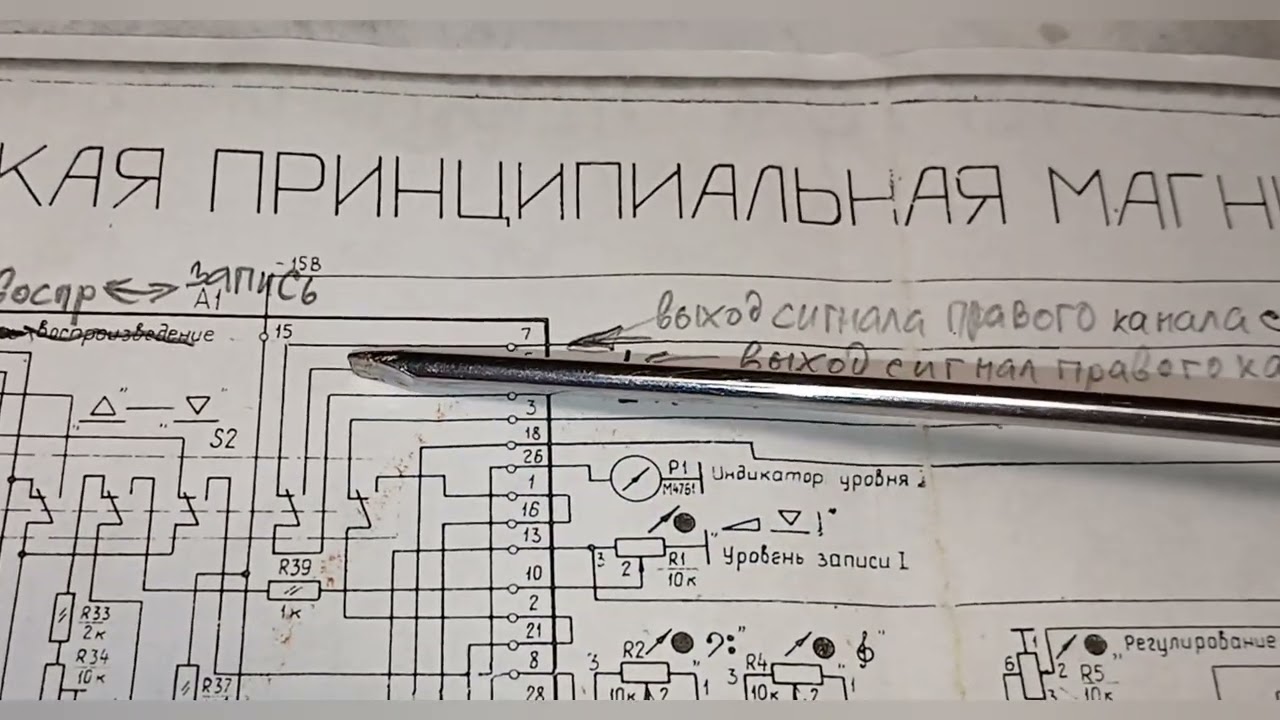 КАЯ ПРИНЦИПИАЛЬНАЯ МАГН
-15В
Воспр ⟷ запись
А1
воспроизведение
15
7
выход сигнала правого канала с
выход сигнал правого ка
3
S2
18
26
Р1
М4761
Индикатор уровня
1
16
13
3
2
R1
10к
Уровень записи I
R39
1к
10
2
21
8
28
R33
2к
R34
10к
R37
R2
3
10к
2
1
R4
3
10к
2
1
"Регулирование
1
6
2
3
R5
10к